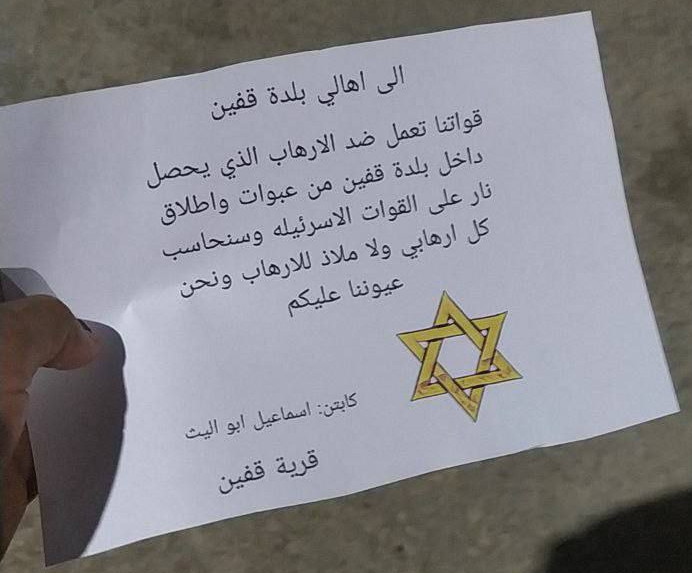 الى اهالي بلدة قفين
قواتنا تعمل ضد الارهاب الذي يحصل
داخل بلدة قفين من عبوات واطلاق
نار على القوات الاسرئيله وسنحاسب
كل ارهابي ولا ملاذ للارهاب ونحن
عيوننا عليكم
كابتن: اسماعيل ابو اليث
قرية قفين